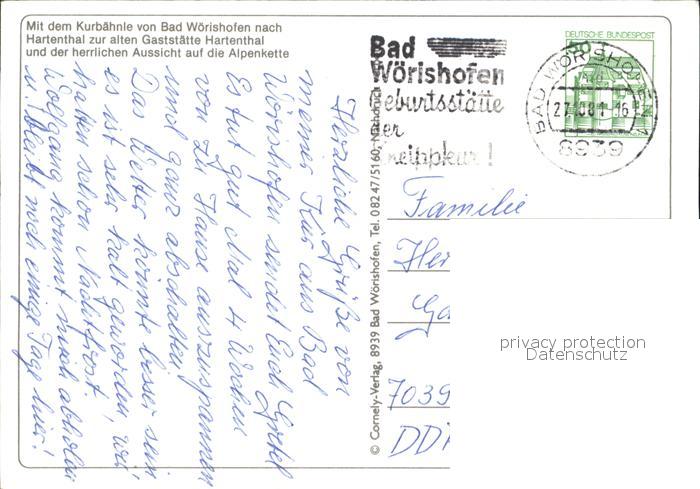 Mit dem Kurbähnle von Bad Wörishofen nach
Hartenthal zur alten Gaststätte Hartenthal
und der herrlichen Aussicht auf die Alpenkette
Herzliche Grüße von
meiner Kur aus Bad
Wörishofen sendet Euch Gretel
Es tut gut mal 4 Wochen
von zu Hause auszuspannen
und ganz abschalten.
Das Wetter könnte besser sein
es ist sehr kalt geworden, wir
hatten schon Nachtfrost.
Wolfgang kommt mich abholen
u. bleibt noch einige Tage hier!
© Cornely-Verlag, 8939 Bad Wörishofen, Tel. 08247/5160, Nachdruck
Bad
Wörishofen
Geburtsstätte
der
Kneippkur!
DEUTSCHE BUNDESPOST
BAD WÖRISHOFEN 1
8939
Familie
Her
Ga
7039
DD
privacy protection
Datenschutz